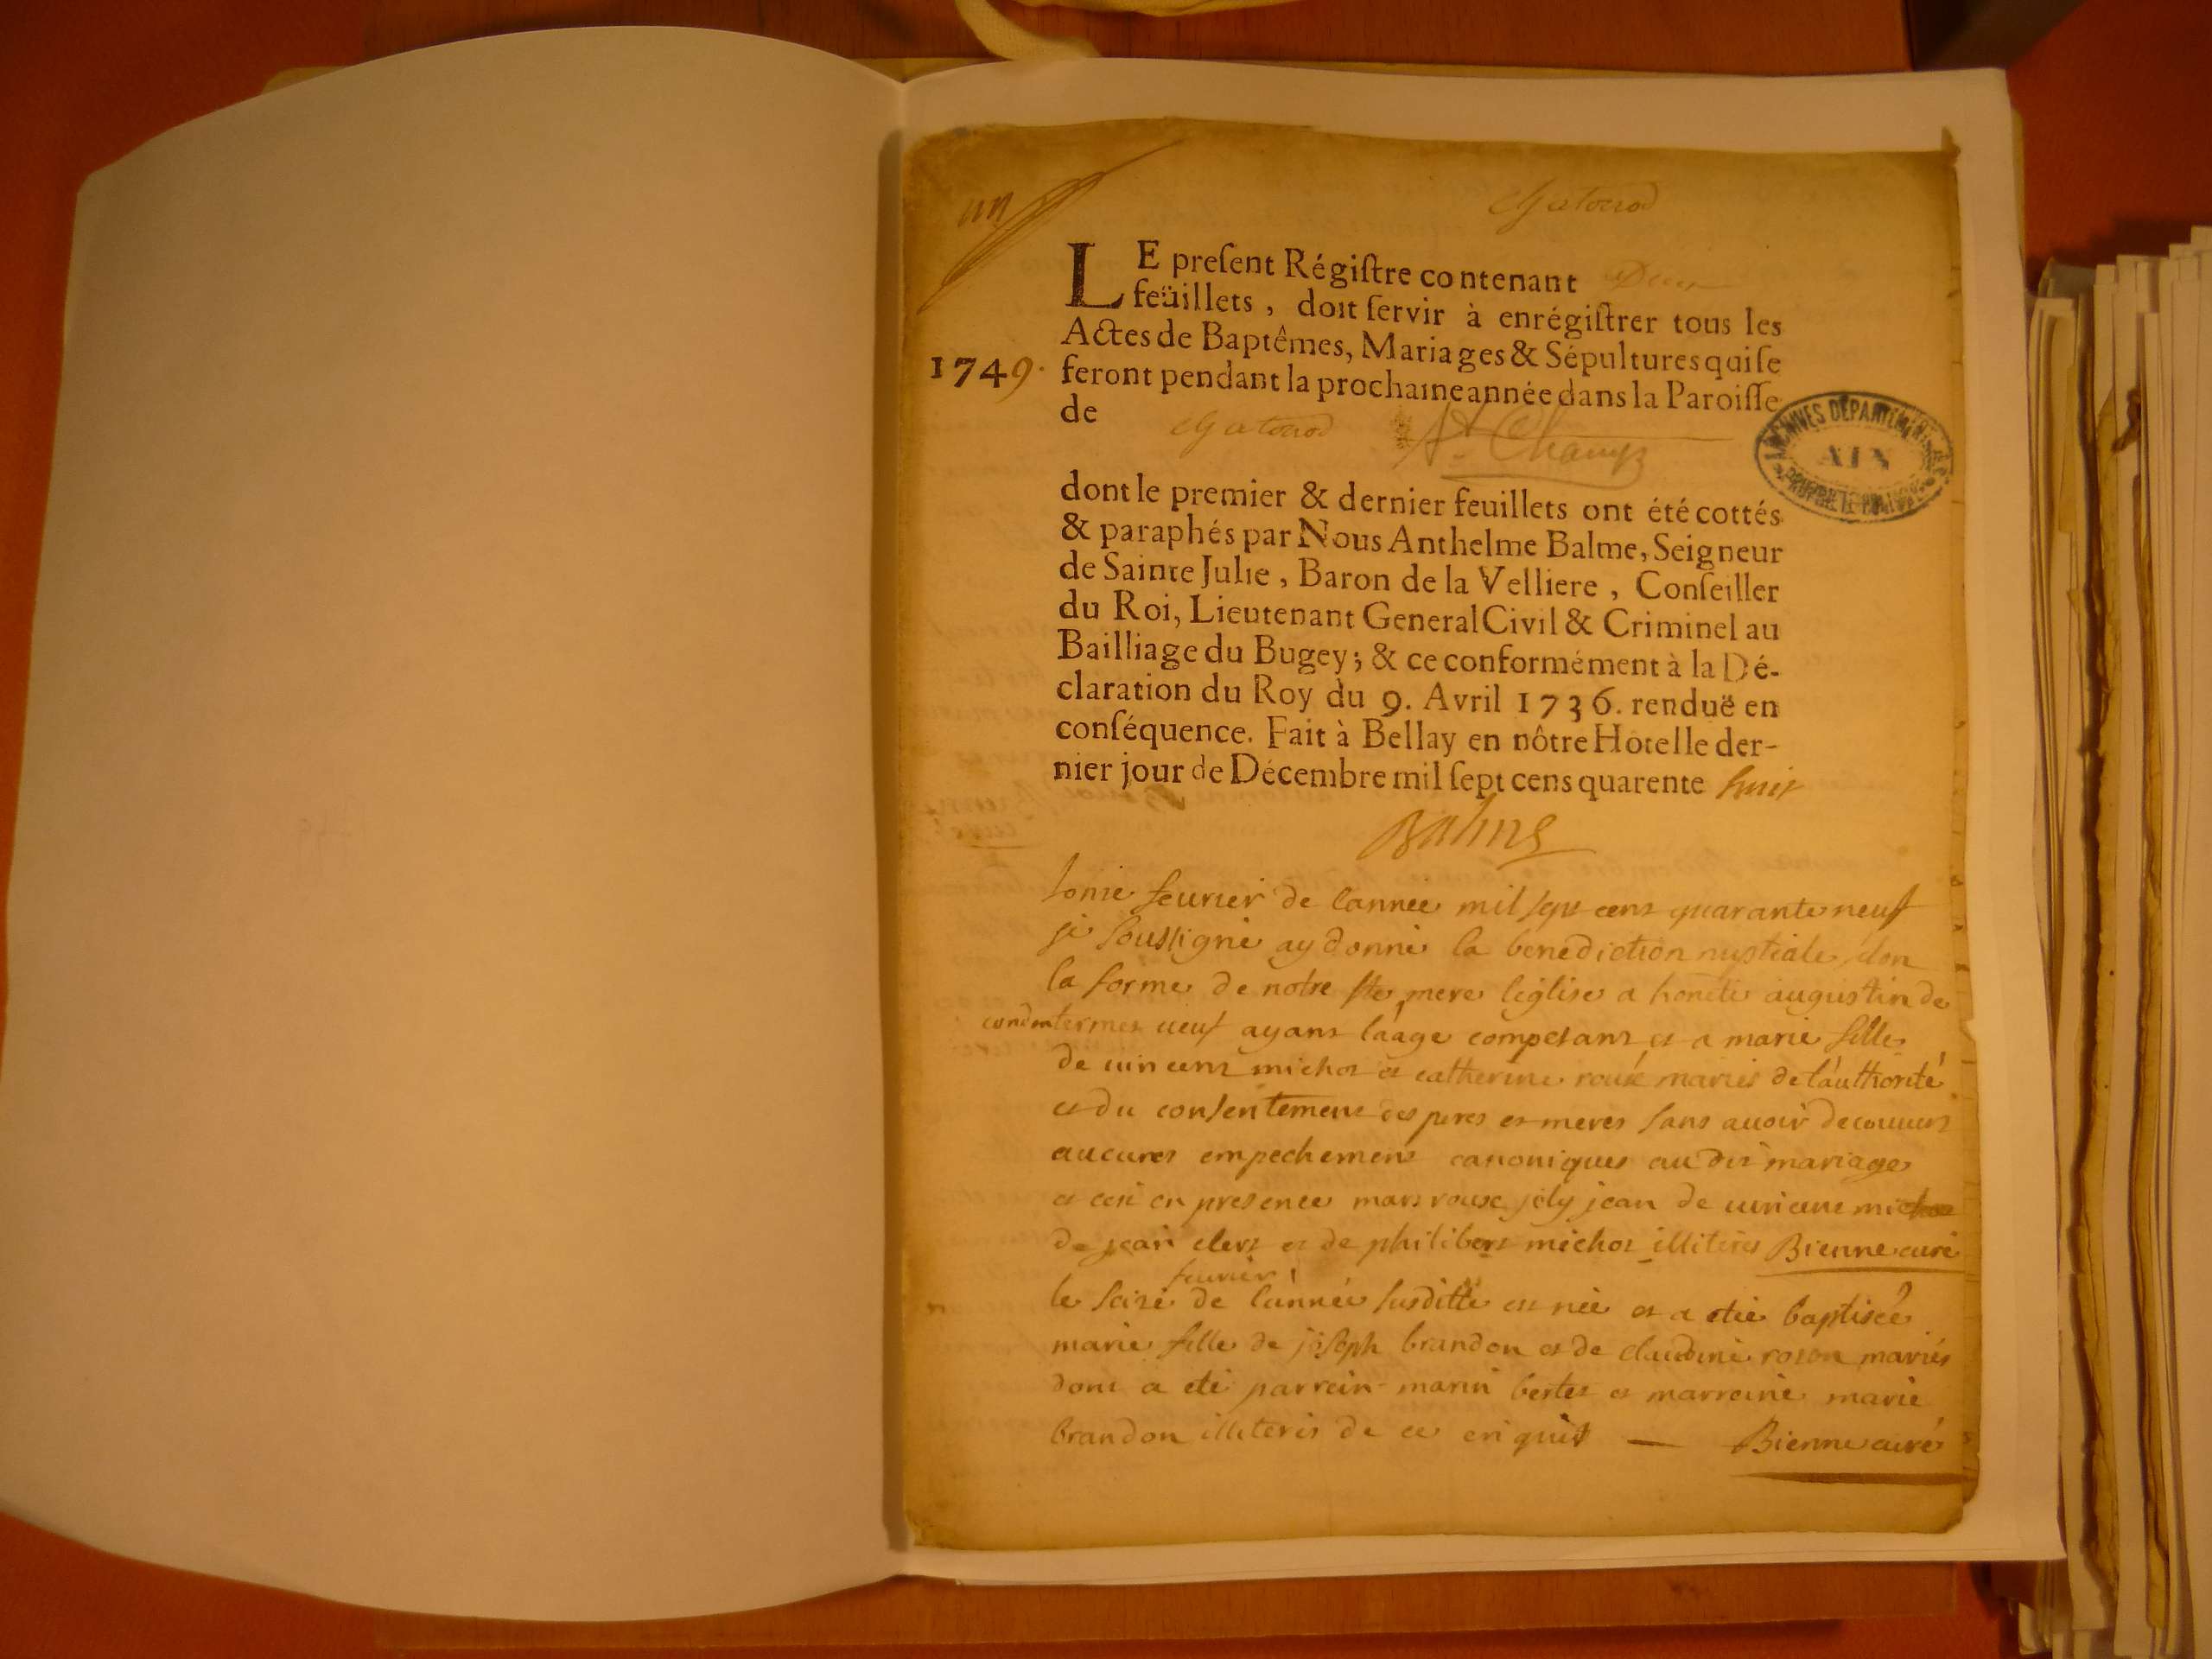 un
Chatonod
LE preſent Régiſtre contenant Deux
feüillets, doit ſervir à enrégiſtrer tous les
Actes de Baptêmes, Mariages & Sépultures qui ſe
1749. feront pendant la prochaine année dans la Paroiſſe
de Chatonod St. Champ
ARCHIVES DÉPARTEMENTALES
AIN
dont le premier & dernier feuillets ont été cottés
& paraphés par Nous Anthelme Balme, Seigneur
de Sainte Julie, Baron de la Velliere, Conſeiller
du Roi, Lieutenant General Civil & Criminel au
Bailliage du Bugey; & ce conformément à la Dé-
claration du Roy du 9. Avril 1736. renduë en
conſéquence. Fait à Bellay en nôtre Hotel le der-
nier jour de Décembre mil ſept cens quarente huit
Balme
lonze feurier de lannee mil sept cent quarante neuf
je soussigné ay donné la benediction nuptiale
la forme de notre ste mere leglise a honete augustin de
ueuf ayant laage competant et a marie fille
de uincent michot et catherine roux mariés de lauthorité
et du consentement des peres et meres sans auoir decouuert
aucunes empechement canoniques au dit mariage
et ceci en presence jean de
de jean clert et de philibert michot illiteres Bienne curé
feurier
le seize de lannée susditte est née et a étée baptisée
marie fille de joseph brandon et de claudine mariés
dont a eté parrein marin bertet et marreine marie
brandon illiterés de ce enquit — Bienne curé